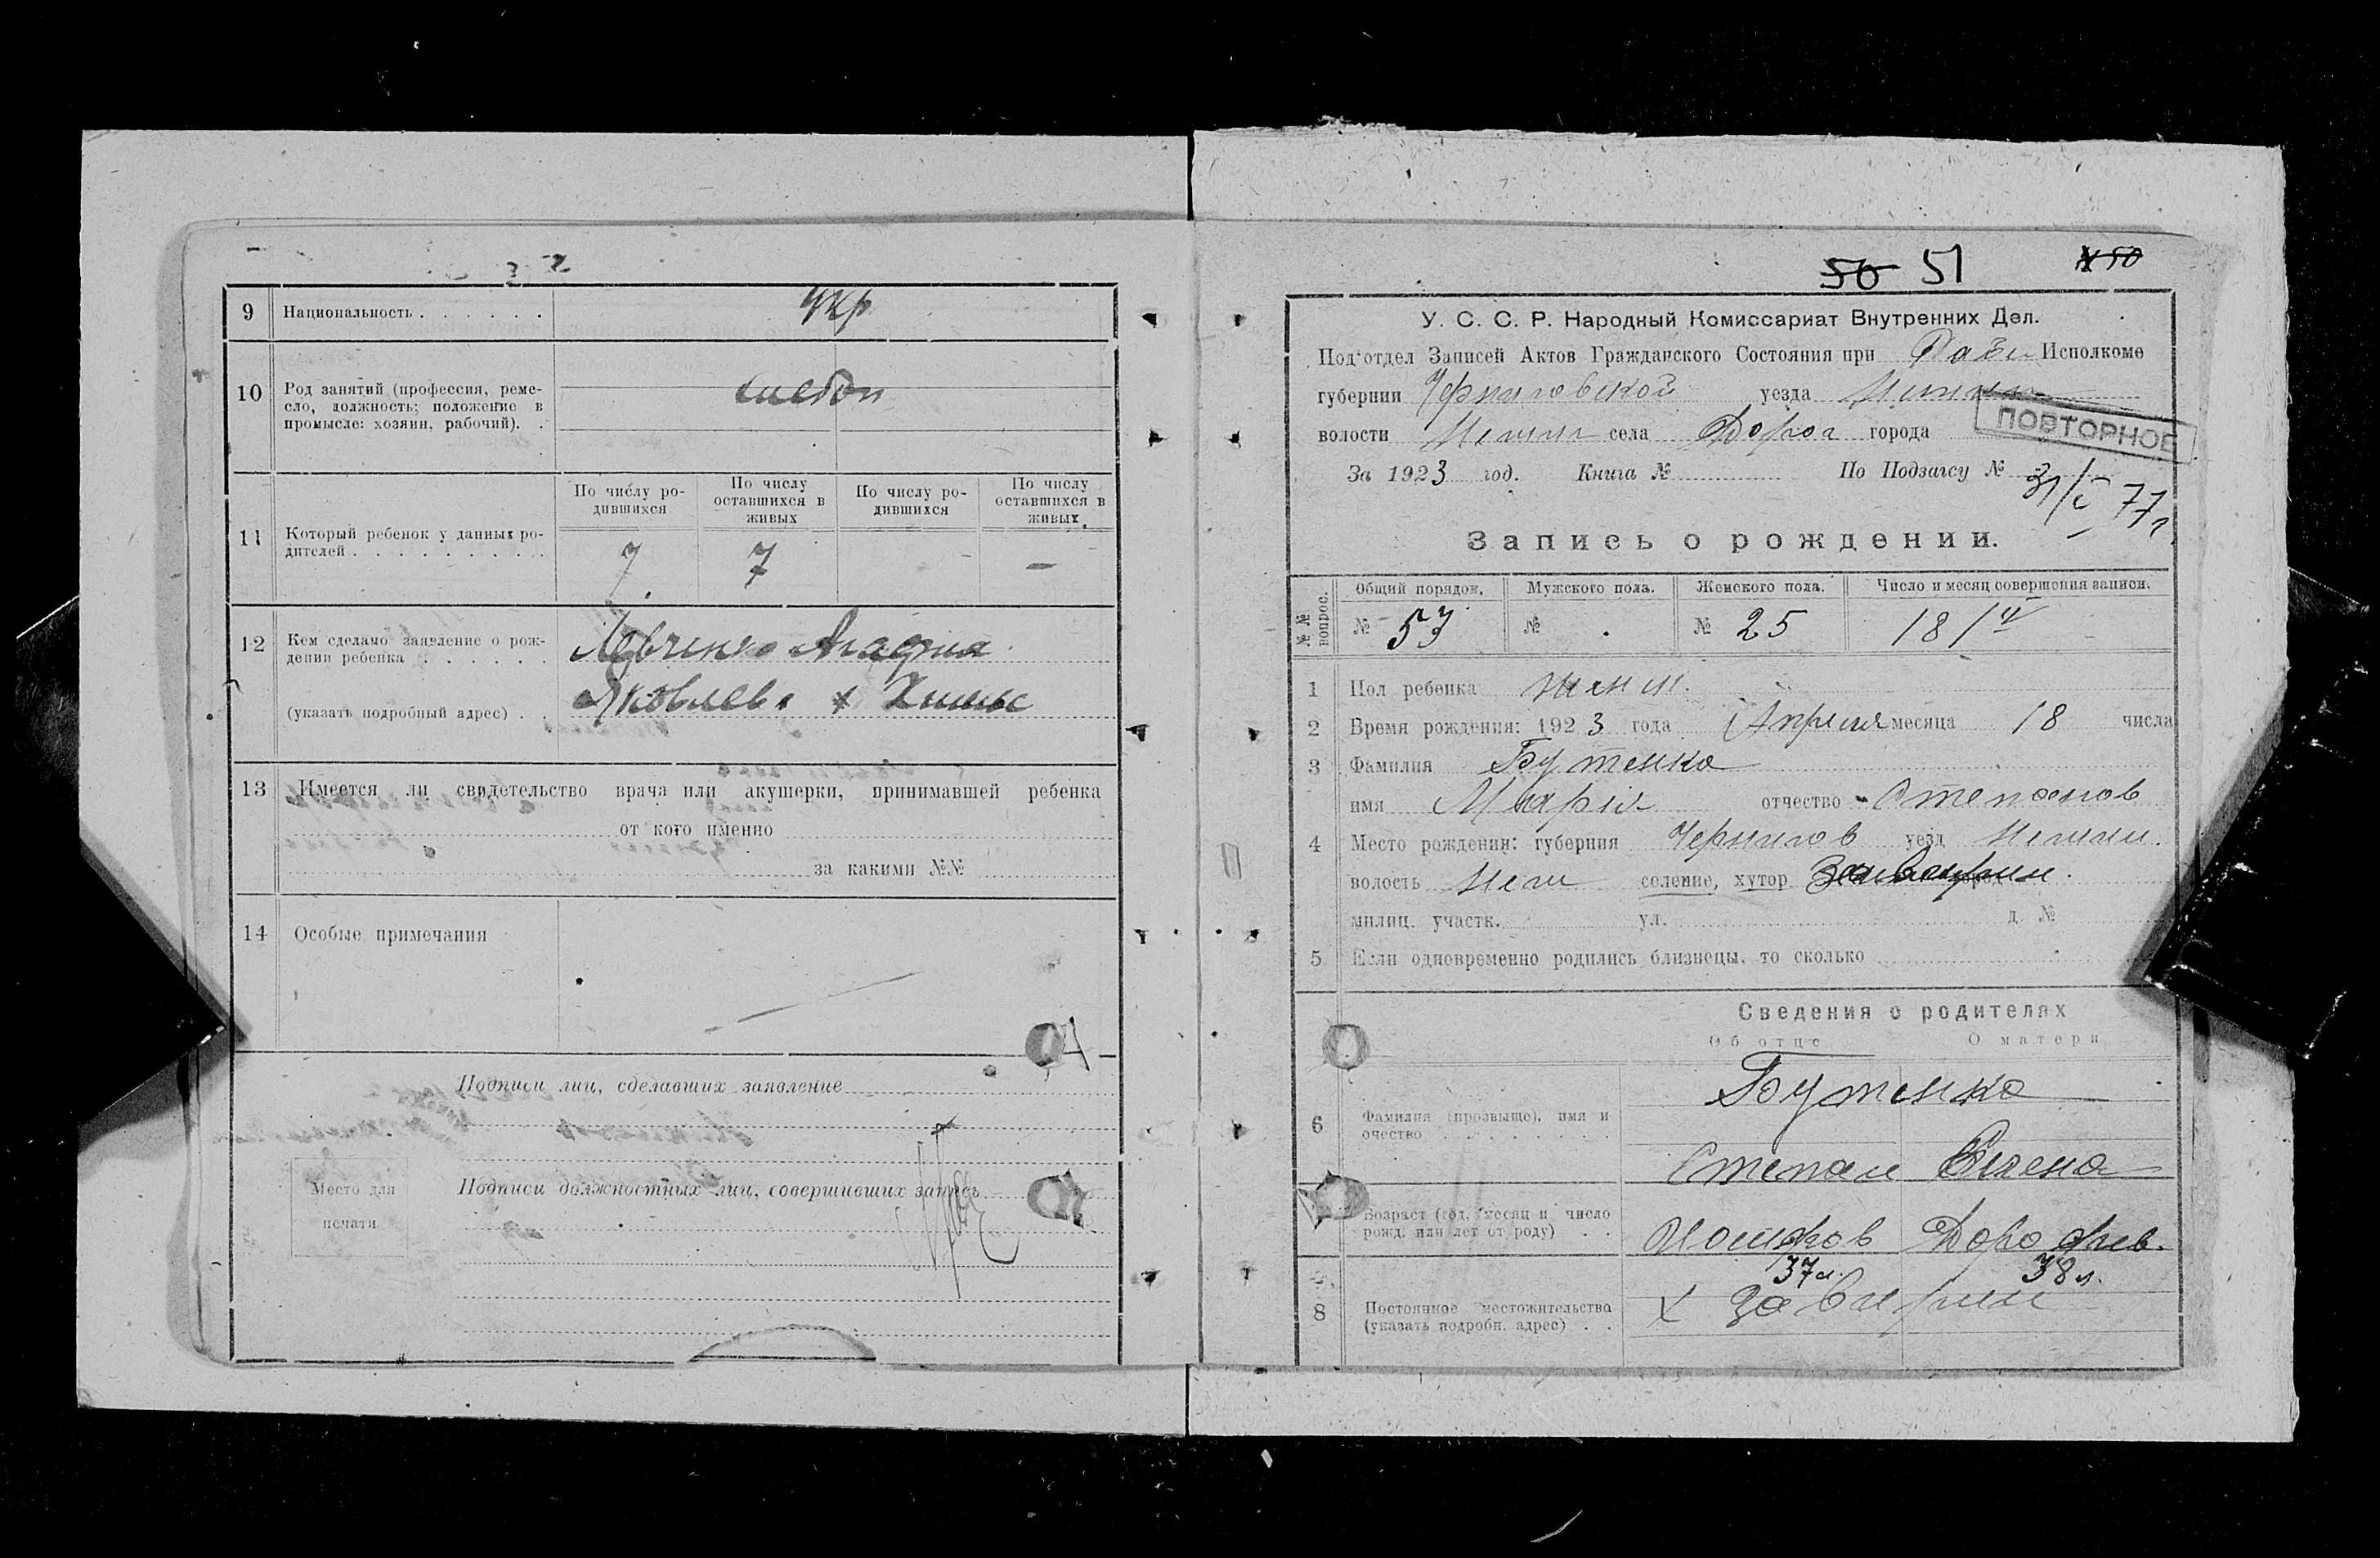 9 Национальность . . . . . . укр
10 Род занятий (профессия, реме-
сло, должность; положение в
промысле: хозяин, рабочий). .
хлебоп
11 Который ребенок у данных ро-
дителей . . . . . . . . . .
По числу ро-
дившихся
По числу
оставшихся в
живых
По числу ро-
дившихся
По числу
оставшихся в
живых
7 7 —
12 Кем сделано заявление о рож-
дении ребенка . . . . . .
(указать подробный адрес) . .
Левченко Агафия
Яковлев х
13 Имеется ли свидетельство врача или акушерки, принимавшей ребенка
от кого именно
за какими №№
14 Особые примечания
Подписи лиц, сделавших заявление
Место для
печати
Подписи должностных лиц, совершивших запись
50 51 № 50
У. С. С. Р. Народный Комиссариат Внутренних Дел.
Под'отдел Записей Актов Гражданского Состояния при Исполкоме
губернии Черниговской уезда Нежин
волости Нежин села города
ПОВТОРНОЕ
За 1923 год. Книга № По Подзагсу №
31/I 77г
Запись о рождении.
№ № вопрос.
Общий порядок. Мужского пола. Женского пола. Число и месяц совершения записи.
№ 53 № № 25 18/IV
1 Пол ребенка женск.
2 Время рождения: 1923 года Апреля месяца 18 числа
3 Фамилия Бутенко
имя Марія отчество Степанов
4 Место рождения: губерния Чернигов уезд Нежин.
волость Неж селение, хутор
милиц. участк. ул. д №
5 Если одновременно родились близнецы, то сколько
Сведения о родителях
Об отце О матери
6 Фамилия (прозвыще), имя и
очество . . . . . . . . .
Бутенко
Степан Елена
Возраст (год, месяц и число
рожд. или лет от роду) . .
Дорофеев.
37 л. 38 л.
8 Постоянное местожительства
(указать подробн. адрес) . .
х